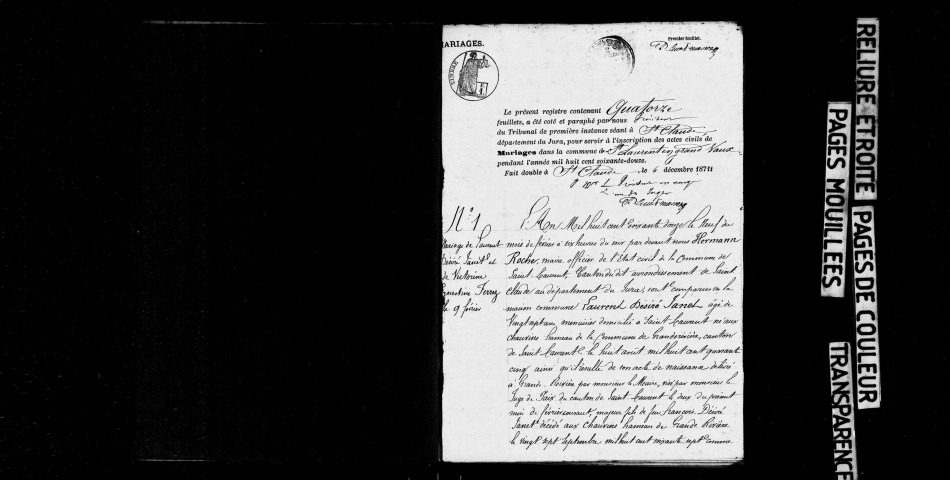 MARIAGES.
Premier feuillet.
Le présent registre contenant Quatorze
feuillets, a été coté et paraphé par nous
du Tribunal de première instance séant à St Claude
département du Jura, pour servir à l'inscription des actes civils de
Mariages dans la commune de St Laurent en grand Vaux
pendant l'année mil huit cent soixante-douze.
Fait double à St Claude le 6 décembre 1871
N° 1
Mariage de Laurent
Désiré Janet et
de Victorine
Ernestine Ferrez
le 9 février
L'An Mil huit cent soixante douze le Neuf du
mois de février à six heures du soir par devant nous Hermann
Roche, maire officier de l'Etat civil de la Commune de
Saint Laurent, Canton du dit arrondissement de Saint
Claude au département du Jura, sont comparus en la
maison commune Laurent Désiré Janet âgé de
Vingt sept ans menuisier domicilié à Saint Laurent né aux
chauvins hameau de la Commune de Granderivière, canton
de Saint Laurent le huit août mil huit cent quarante
cinq ainsi qu'il résulte de son acte de naissance délivré
à Grande Rivière par monsieur le Maire, visé par monsieur le
Juge de Paix du canton de Saint Laurent le deux du présent
mois de février courant, majeur fils de feu françois Désiré
Janet décédé aux chauvins hameau de Grande Rivière
le vingt sept Septembre mil huit cent soixante sept comme
RELIURE ETROITE
PAGES DE COULEUR
PAGES MOUILLEES
TRANSPARENCE